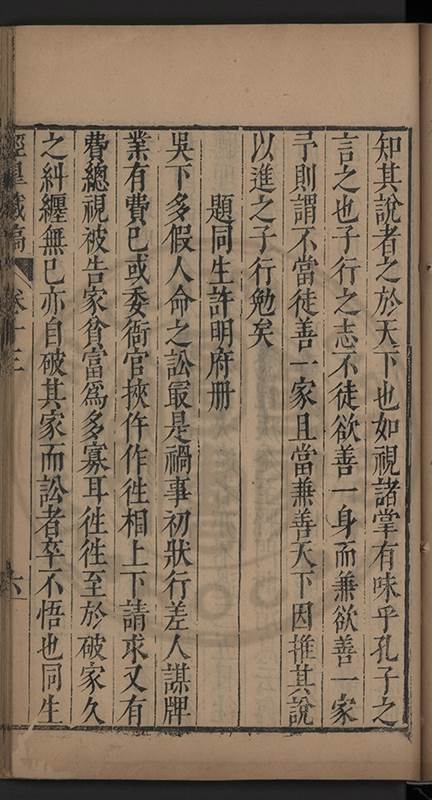 知其說者之於天下也如視諸掌有味乎孔子之
言之也子行之志不徒欲善一身而兼欲善一家
予則謂不當徒善一家且當兼善天下因推其說
以進之子行勉矣
題同生許明府冊
吳下多假人命之訟最是禍事初狀行差人謀牌
業有費已或委衙官挾仵作徃相上下請求又有
費總視被告家貧富爲多寡耳徃徃至於破家久
之糾纏無已亦自破其家而訟者卒不悟也同生
涇臯藏稿 卷十三 六